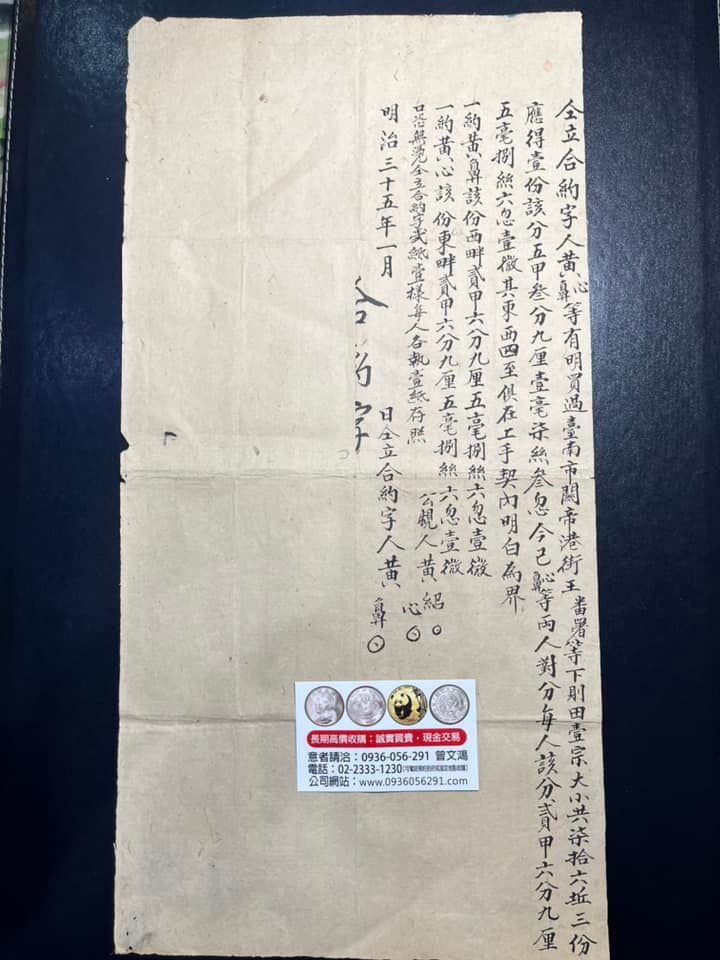 仝立合約字人黃心鼻等有明買過臺南市關帝港街王番署等下則田壹宗大小共柒拾六坵三份
應得壹份該分五甲叁分九厘壹毫柒絲叁忽今已心鼻等兩人對分每人該分貳甲六分九厘
五毫捌絲六忽壹微其東西四至俱在上手契內明白為界
一約黃鼻該份西畔貳甲六分九厘五毫捌絲六忽壹微
一約黃心該份東畔貳甲六分九厘五毫捌絲六忽壹微
口恐無憑仝立合約字貳紙壹樣每人各執壹紙存照
公親人黃紹
明治三十五年一月 日仝立合約字人黃心鼻
合約字
長期高價收購：誠實買賣，現金交易
意者請洽：0936-056-291 曾文鴻
電話：02-2333-1230
公司網站：www.0936056291.com